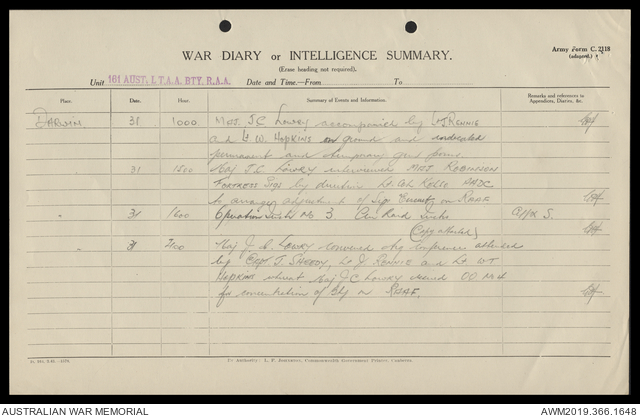 Army Form C. 2118
(adapted.)
WAR DIARY or INTELLIGENCE SUMMARY.
(Erase heading not required).
Unit 161 AUST. I.T.A.A. BTY. R.A.A. Date and Time.—From To
Place. Date. Hour. Summary of Events and Information. Remarks and references to Appendices, Diaries, &c.
DARWIN 31 1000 MAJ. J.C LOWRY accompanied by Lt J RENNIE
and Lt W. HOPKINS on ground and indicated
permanent and temporary gun posns.
" 31 1500 Maj J.C. LOWRY interviewed MAJ ROBINSON
FORTRESS Sigs by direction Lt. Col. KELSO AADC
to arrange adjustment of Sigs on RAAF
" 31 1600 Operation Instr No 3 Air Raid Appx 5.
(Copy attached)
" 31 2100 Maj J.C. LOWRY convened the conference attended
by Capt J. SHEEDY, Lt J RENNIE and Lt WT
HOPKINS whereat Maj J.C LOWRY issued OO No 4
for concentration of Bty on RAAF.
By Authority: L. F. Johnston, Commonwealth Government Printer, Canberra.
AUSTRALIAN WAR MEMORIAL
AWM2019.366.1648